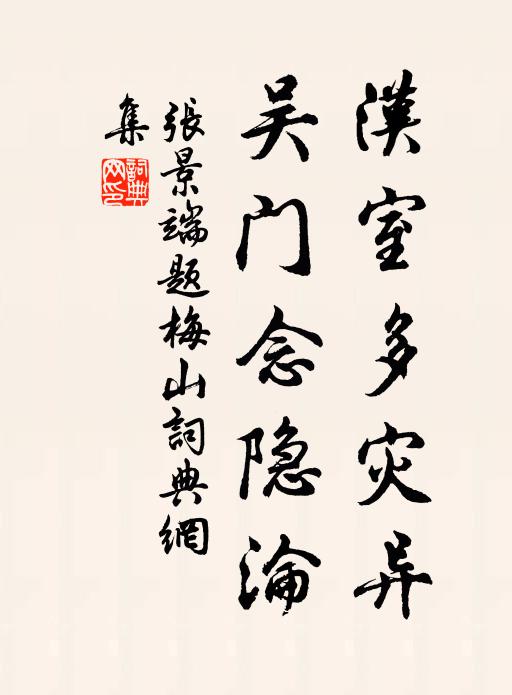 漢室多灾异
吴门念隐淪
張景端題梅山詞典網
集
詞典网印